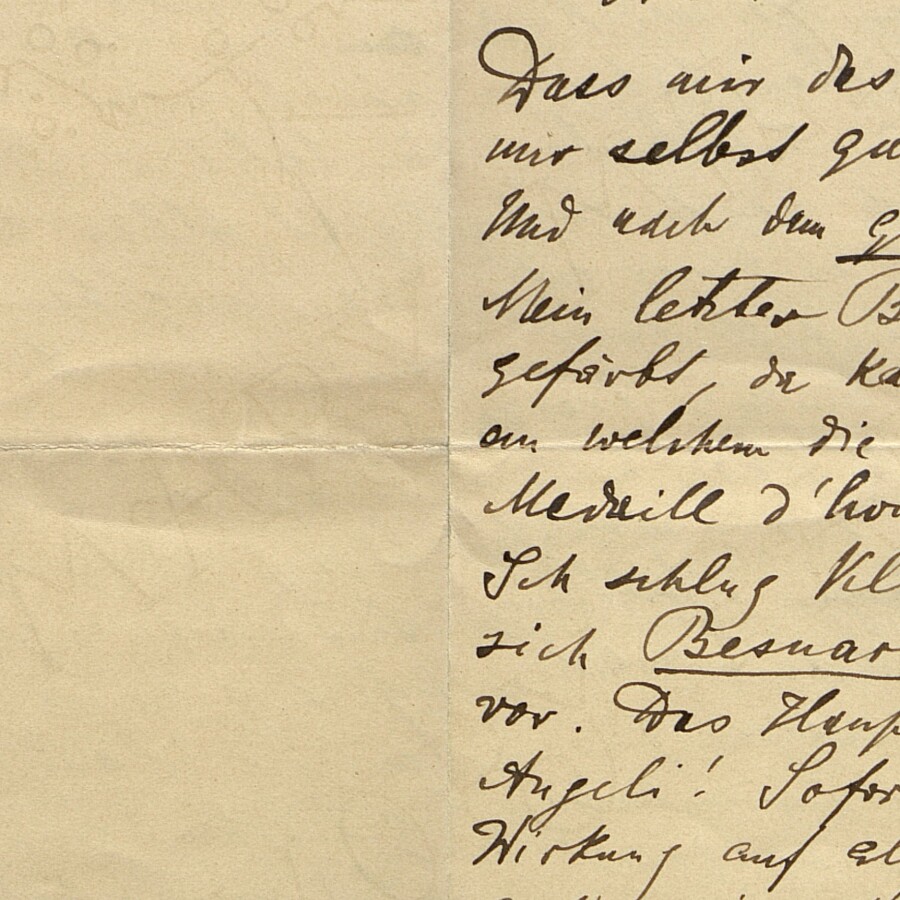 Dass mir das
mir selbst gu
Und nach dem
Mein letzter B
gefärbt, da ka
an welchem die
Medaill d'ho
Ich schlug Kl
sich Besnar
vor. Das Haup
Angeli! Sofor
Wirkung auf al